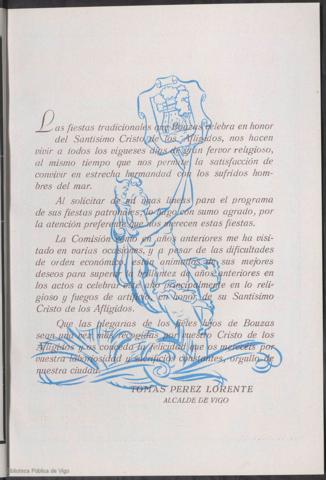 Las fiestas tradicionales que Bouzas celebra en honor
del Santísimo Cristo de los Afligidos, nos hacen
vivir a todos los vigueses días de gran fervor religioso,
al mismo tiempo que nos permite la satisfacción de
convivir en estrecha hermandad con los sufridos hom-
bres del mar.
Al solicitar de mí unas líneas para el programa
de sus fiestas patronales, lo hago con sumo agrado, por
la atención preferente que nos merecen estas fiestas.
La Comisión como en años anteriores me ha visi-
tado en varias ocasiones, y a pesar de las dificultades
de orden económico, están animados en sus mejores
deseos para superar la brillantez de años anteriores en
los actos a celebrar este año principalmente en lo reli-
gioso y fuegos de artificio, en honor de su Santísimo
Cristo de los Afligidos.
Que las plegarias de los fieles hijos de Bouzas
sean una vez más recogidas por nuestro Cristo de los
Afligidos y os conceda la felicidad que os merecéis por
vuestra laboriosidad y sacrificios constantes, orgullo de
nuestra ciudad.
TOMAS PEREZ LORENTE
ALCALDE DE VIGO
Biblioteca Pública de Vigo